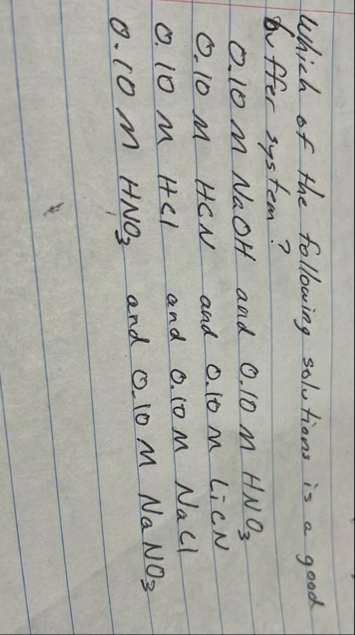 Which of the following solutions is a good
buffer system?
0.10 M NaOH and 0.10 M HNO3
0.10 M HCN and 0.10 M LiCN
0.10 M HCl and 0.10 M NaCl
0.10 M HNO3 and 0.10 M NaNO3